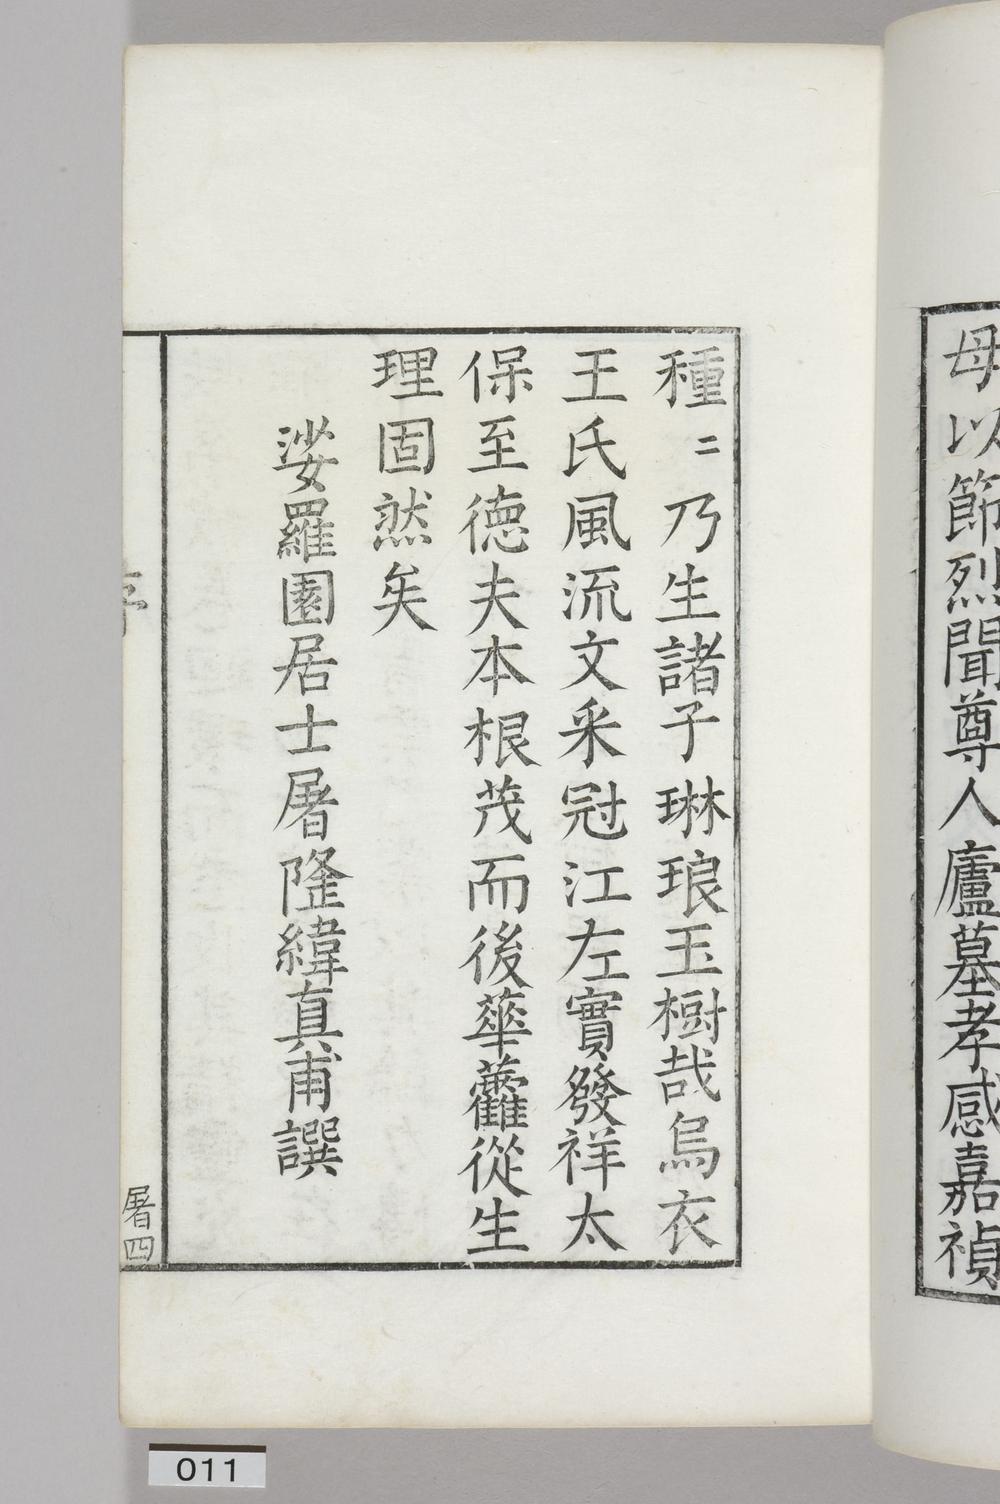 母以節烈聞尊人廬墓孝感嘉禎
種〻乃生諸子琳琅玉樹哉烏衣
王氏風流文采冠江左實發祥太
保至德夫本根茂而後華虇從生
理固然矣
娑羅園居士屠隆緯真甫譔
序
屠四
011